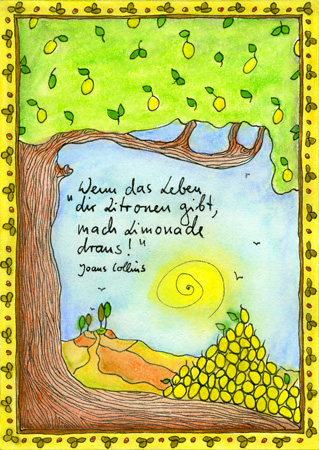 Wenn das Leben
"dir Zitronen gibt,
mach Limonade
draus!"
Joans Collins